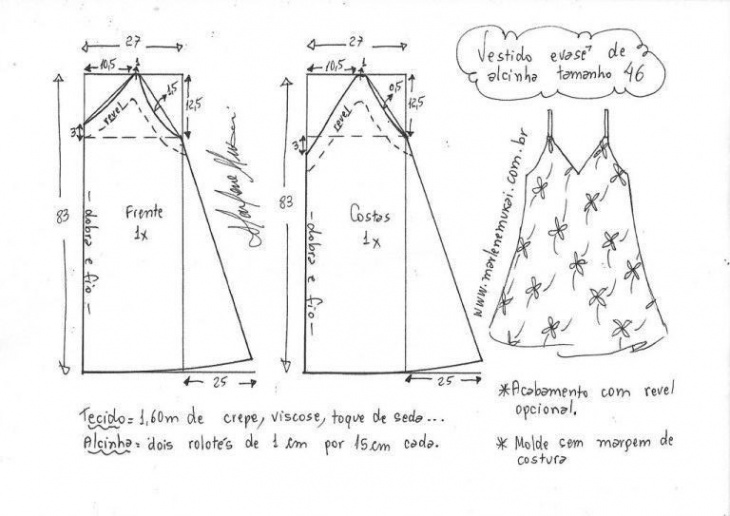 Vestido evasê de
alcinha tamanho 46
27
10,5
1
1,5
12,5
revel
3
83
Frente
1x
- dobra e fio -
25
Marlene Mukai
27
10,5
1
0,5
12,5
revel
3
83
Costas
1x
- dobra e fio -
25
www.marlenemukai.com.br
*Acabamento com revel
opcional.
* Molde sem margem de
costura
Tecido= 1,60m de crepe, viscose, toque de seda...
Alcinha= dois rolotês de 1 cm por 15cm cada.